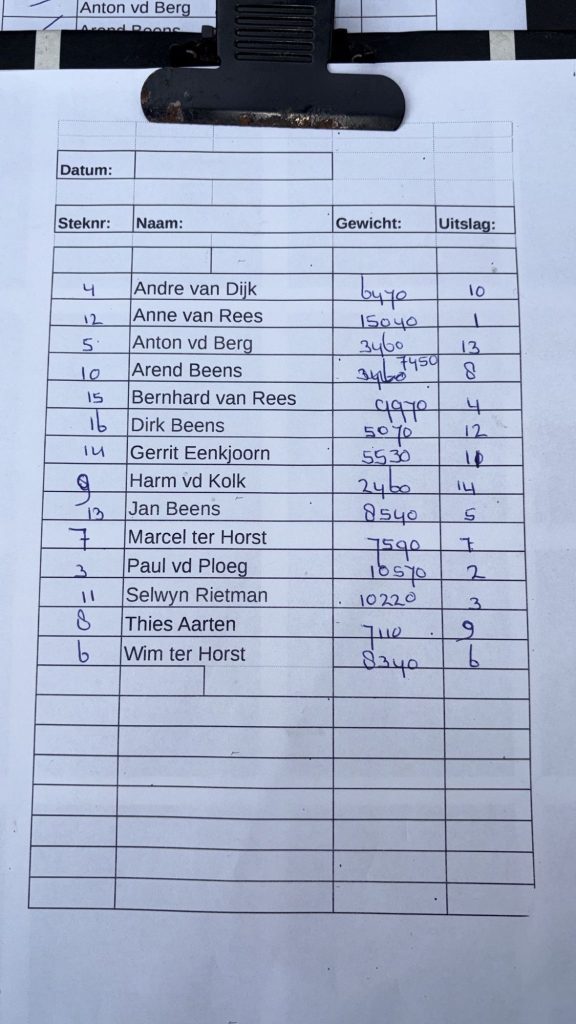 Anton vd Berg
Arend Beens
Datum:
Steknr: Naam: Gewicht: Uitslag:
4 Andre van Dijk 6470 10
12 Anne van Rees 15040 1
5 Anton vd Berg 3460 13
10 Arend Beens 3460 7450 8
15 Bernhard van Rees 9970 4
16 Dirk Beens 5070 12
14 Gerrit Eenkjoorn 5530 11
9 Harm vd Kolk 2460 14
13 Jan Beens 8540 5
7 Marcel ter Horst 7590 7
3 Paul vd Ploeg 10570 2
11 Selwyn Rietman 10220 3
8 Thies Aarten 7110 9
6 Wim ter Horst 8340 6